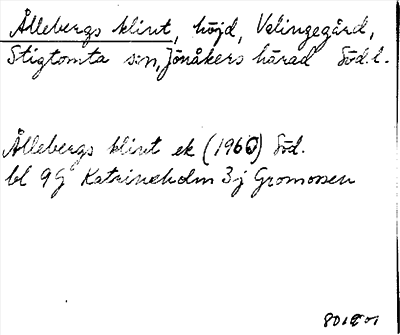 Ållebergs klint, höjd, Valingegård,
Stigtomta s:n, Jönåkers härad Söd.l.
Ållebergs klint ek (1960) Söd.
bl 9 G Katrineholm 3 j Gromossen